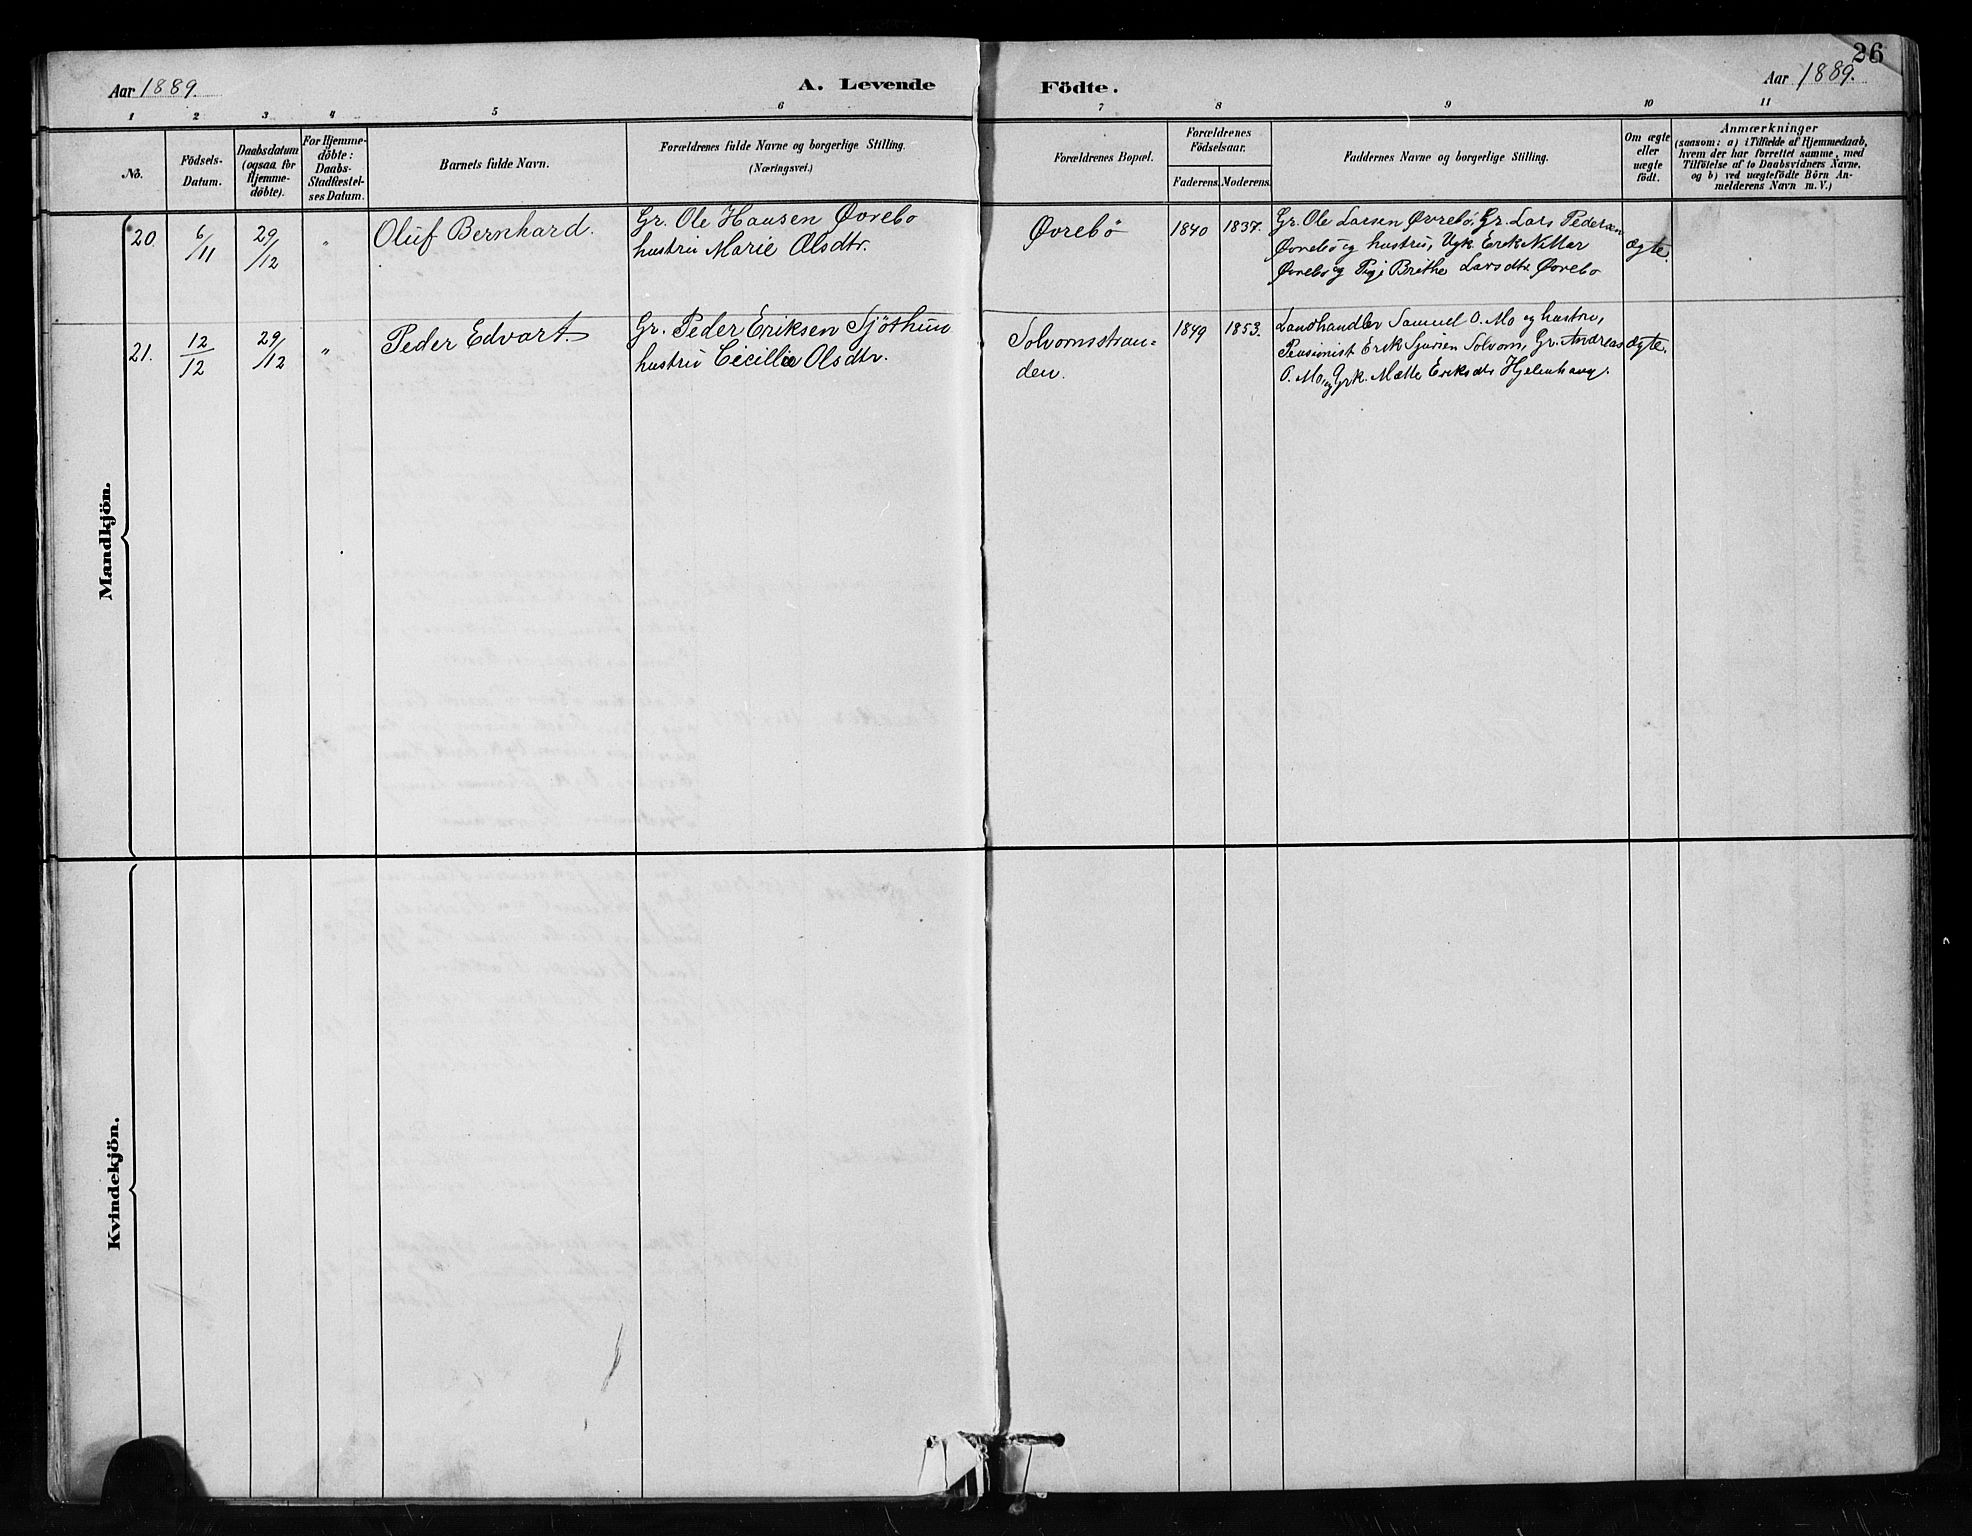 26
Aar 1889.
A. Levende Födte.
Aar 1889.
1 2 3 4 5 6 7 8 9 10 11
No.
Födsels-
Datum.
Daabsdatum
(ogsaa for
Hjemme-
döbte).
For Hjemme-
döbte:
Daabs-
Stadfæstel-
ses Datum.
Barnets fulde Navn.
Forældrenes fulde Navne og borgerlige Stilling.
(Næringsvei.)
Forældrenes Bopæl.
Forældrenes
Födselsaar.
Faderens. Moderens.
Faddernes Navne og borgerlige Stilling.
Om ægte
eller
uægte
født.
Anmærkninger
(saasom: a) i Tilfælde af Hjemmedaab,
hvem der har forrettet samme, med
Tilföielse af to Daabsvidners Navne,
og b) ved uægtefödte Börn An-
melderens Navn m. V.)
Mandkjön.
20. 6/11 29/12 " Oluf Bernhard.
Gr. Ole Hansen Øvrebø
hustru Marie Olsdtr.
Øvrebö 1840 1837.
Gr. Ole Larsen Øvrebö, Gr. Lars Pedersen
Øvrebö og hustru, Ugk. Erik Nitter
Øvrebø og Pige Brithe Larsdtr Øvrebø
ægte.
21. 12/12 29/12 " Peder Edvart.
Gr. Peder Eriksen Sjøthun
hustru Cecillie Olsdtr.
Solvornsstran=
den.
1849 1853.
Landhandler Samuel O. Mo og hustru,
Pensionist Erik Sjursen Solvorn, Gr. Andreas
O. Mo og Grk. Mætte Eriksdtr Hjelmhaug.
ægte.
Kvindekjön.